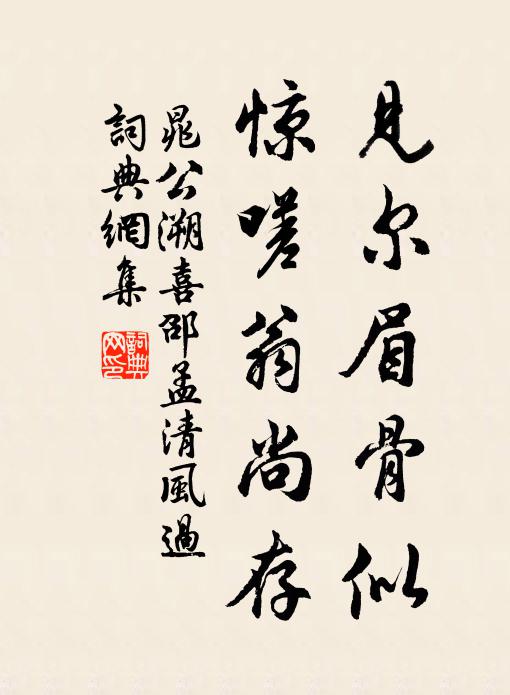 见尔眉骨似
惊嗟翁尚存
晁公溯喜邵孟清風過
詞典網集
詞典
网印